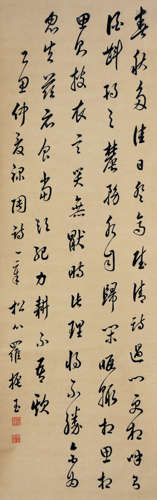 春秋多佳日登高賦新詩過門更相呼有
酒斟酌之農務各自歸閒暇輒相思相
思則披衣言笑無厭時此理將不勝無為
忽去茲衣食當須紀力耕不吾欺
仲夏錄陶詩一章 松翁羅振玉